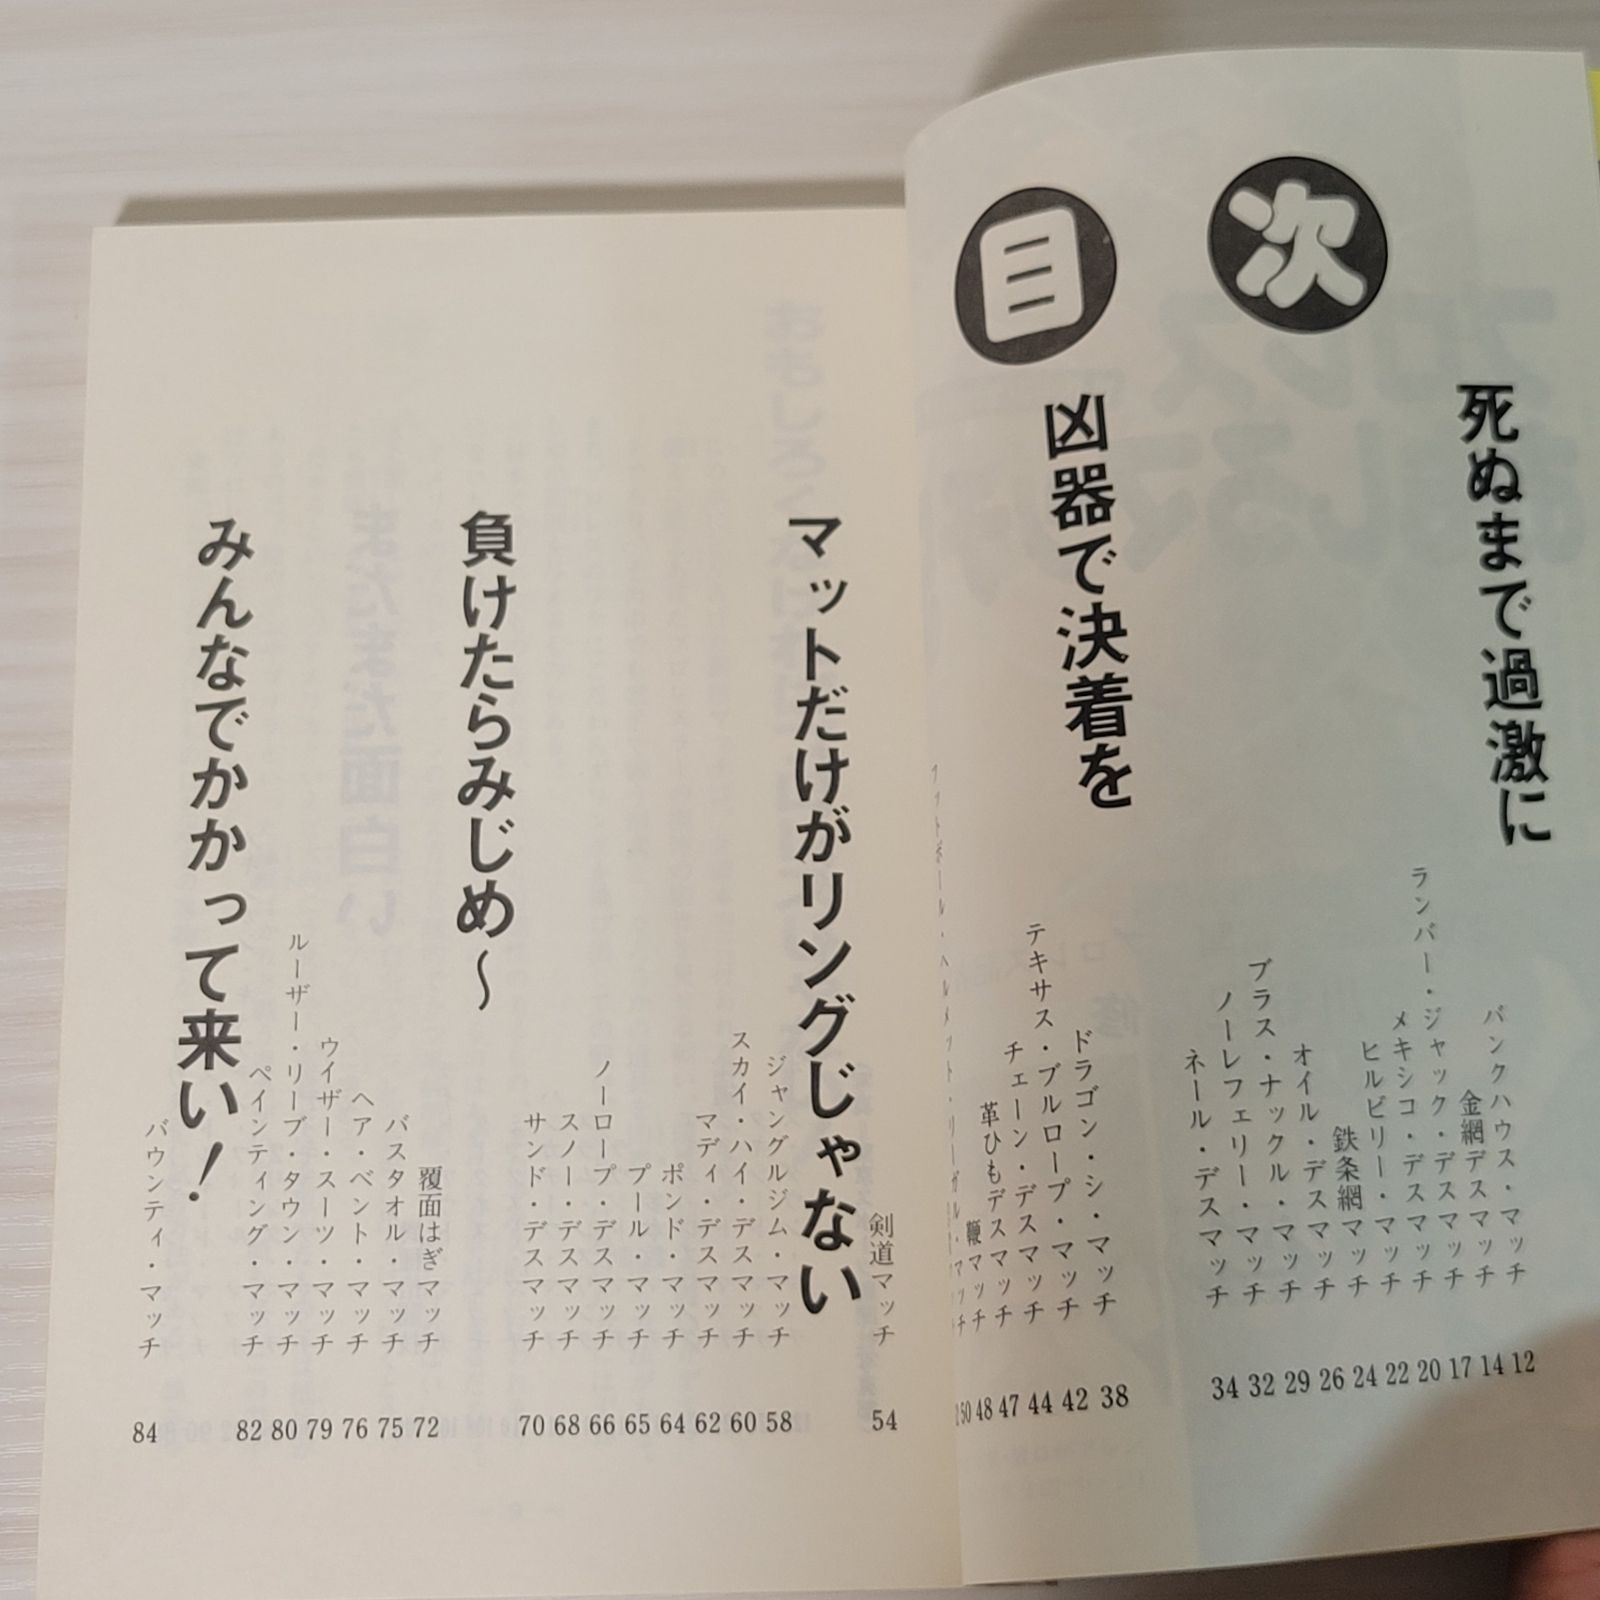 目次
死ぬまで過激に
バンクハウス・マッチ 12
金網デスマッチ 14
ランバー・ジャック・デスマッチ 17
メキシコ・デスマッチ 20
ヒルビリー・マッチ 22
鉄条網マッチ 24
オイル・デスマッチ 26
ブラス・ナックル・マッチ 29
ノーレフェリー・マッチ 32
ネール・デスマッチ 34
凶器で決着を
ドラゴン・シ・マッチ 38
テキサス・ブルロープ・マッチ 42
チェーン・デスマッチ 44
革ひもデスマッチ 47
鞭マッチ 48
フットボール・ヘルメット・ 50
剣道マッチ 54
マットだけがリングじゃない
ジャングルジム・マッチ 58
スカイ・ハイ・デスマッチ 60
マディ・デスマッチ 62
ポンド・マッチ 64
プール・マッチ 65
ノーロープ・デスマッチ 66
スノー・デスマッチ 68
サンド・デスマッチ 70
負けたらみじめ〜
覆面はぎマッチ 72
バスタオル・マッチ 75
ヘア・ベント・マッチ 76
ウイザー・スーツ・マッチ 79
ルーザー・リーブ・タウン・マッチ 80
ペインティング・マッチ 82
みんなでかかって来い！
バウンティ・マッチ 84